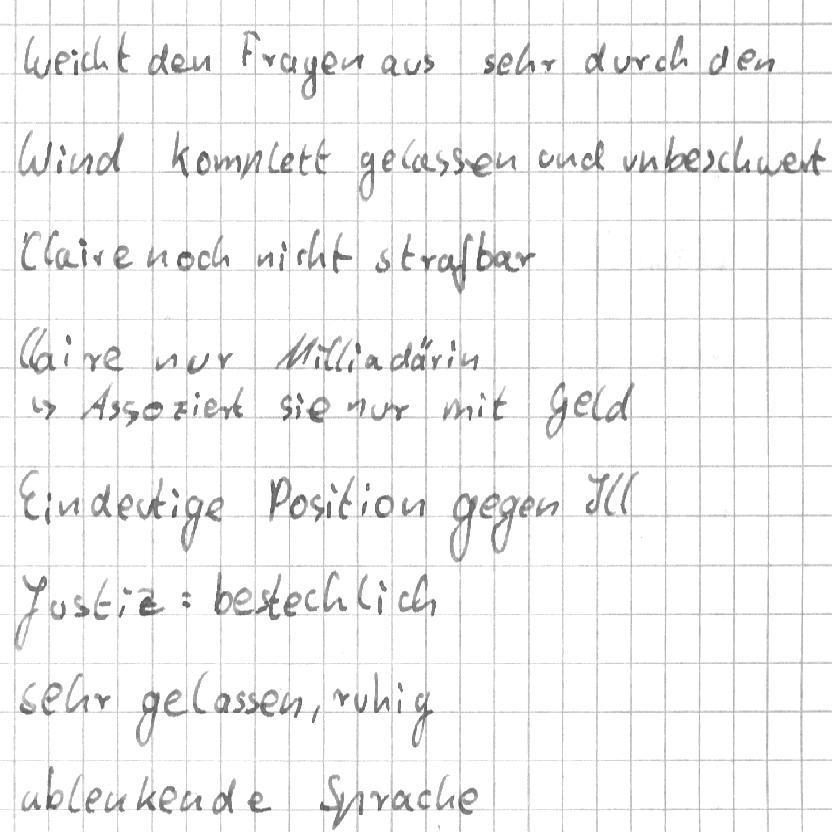 Weicht den Fragen aus sehr durch den
Wind komplett gelassen und unbeschwert
Claire noch nicht strafbar
Claire nur Milliadärin
↳ Assoziert sie nur mit Geld
Eindeutige Position gegen Ill
Justiz: bestechlich
sehr gelassen, ruhig
ablenkende Sprache